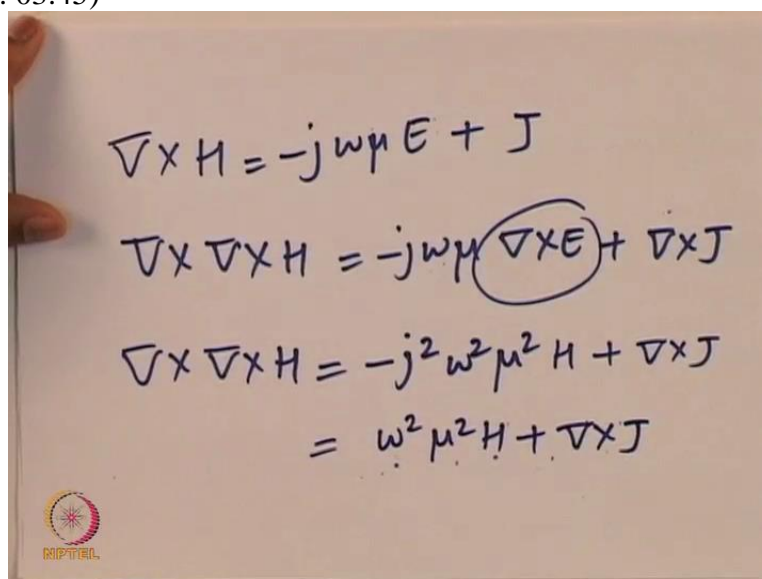 : 03:45)
∇×H = -jωμE + J
∇×∇×H = -jωμ ∇×E + ∇×J
∇×∇×H = -j²ω²μ²H + ∇×J
= ω²μ²H + ∇×J
NPTEL